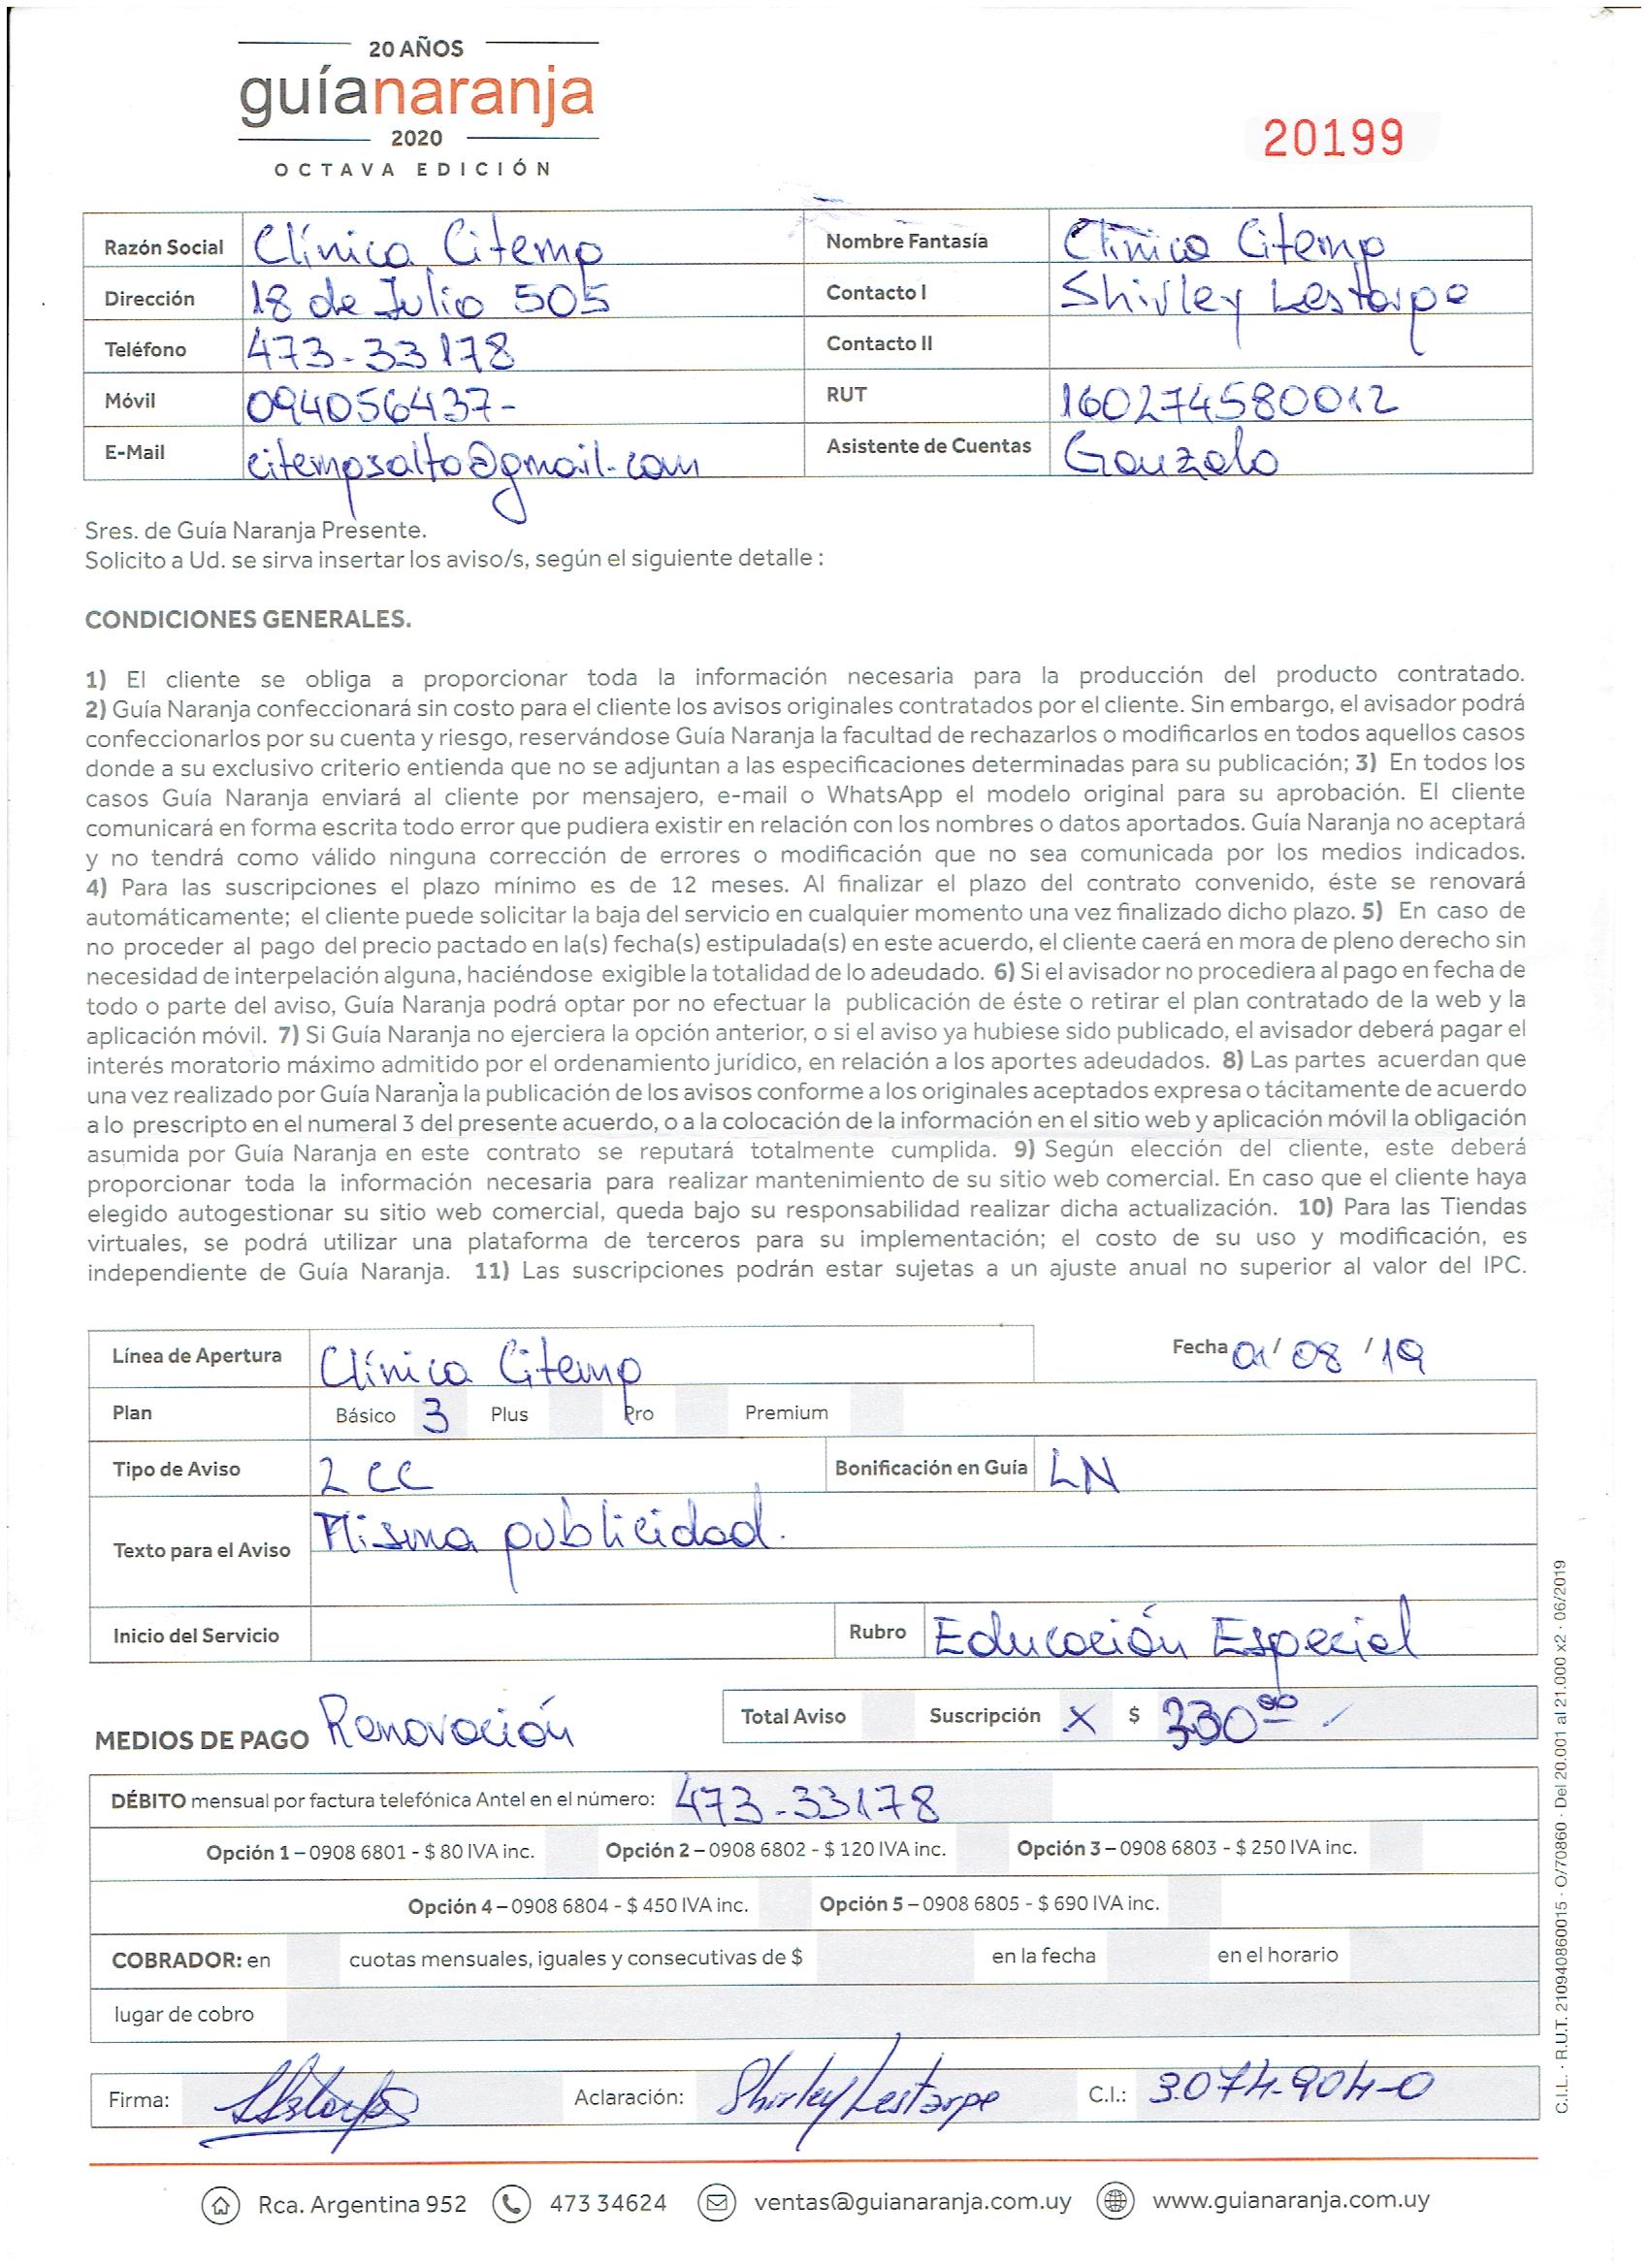 20 AÑOS
guíanaranja
2020
OCTAVA EDICIÓN
20199
Razón Social Clínica Citemp Nombre Fantasía Clínica Citemp
Dirección 18 de Julio 505 Contacto I Shirley Lestarpe
Teléfono 473-33178 Contacto II
Móvil 094056437- RUT 160274580012
E-Mail citempsalto@gmail.com Asistente de Cuentas Gonzalo
Sres. de Guía Naranja Presente.
Solicito a Ud. se sirva insertar los aviso/s, según el siguiente detalle :
CONDICIONES GENERALES.
1) El cliente se obliga a proporcionar toda la información necesaria para la producción del producto contratado.
2) Guía Naranja confeccionará sin costo para el cliente los avisos originales contratados por el cliente. Sin embargo, el avisador podrá
confeccionarlos por su cuenta y riesgo, reservándose Guía Naranja la facultad de rechazarlos o modificarlos en todos aquellos casos
donde a su exclusivo criterio entienda que no se adjuntan a las especificaciones determinadas para su publicación; 3) En todos los
casos Guía Naranja enviará al cliente por mensajero, e-mail o WhatsApp el modelo original para su aprobación. El cliente
comunicará en forma escrita todo error que pudiera existir en relación con los nombres o datos aportados. Guía Naranja no aceptará
y no tendrá como válido ninguna corrección de errores o modificación que no sea comunicada por los medios indicados.
4) Para las suscripciones el plazo mínimo es de 12 meses. Al finalizar el plazo del contrato convenido, éste se renovará
automáticamente; el cliente puede solicitar la baja del servicio en cualquier momento una vez finalizado dicho plazo. 5) En caso de
no proceder al pago del precio pactado en la(s) fecha(s) estipulada(s) en este acuerdo, el cliente caerá en mora de pleno derecho sin
necesidad de interpelación alguna, haciéndose exigible la totalidad de lo adeudado. 6) Si el avisador no procediera al pago en fecha de
todo o parte del aviso, Guía Naranja podrá optar por no efectuar la publicación de éste o retirar el plan contratado de la web y la
aplicación móvil. 7) Si Guía Naranja no ejerciera la opción anterior, o si el aviso ya hubiese sido publicado, el avisador deberá pagar el
interés moratorio máximo admitido por el ordenamiento jurídico, en relación a los aportes adeudados. 8) Las partes acuerdan que
una vez realizado por Guía Naranja la publicación de los avisos conforme a los originales aceptados expresa o tácitamente de acuerdo
a lo prescripto en el numeral 3 del presente acuerdo, o a la colocación de la información en el sitio web y aplicación móvil la obligación
asumida por Guía Naranja en este contrato se reputará totalmente cumplida. 9) Según elección del cliente, este deberá
proporcionar toda la información necesaria para realizar mantenimiento de su sitio web comercial. En caso que el cliente haya
elegido autogestionar su sitio web comercial, queda bajo su responsabilidad realizar dicha actualización. 10) Para las Tiendas
virtuales, se podrá utilizar una plataforma de terceros para su implementación; el costo de su uso y modificación, es
independiente de Guía Naranja. 11) Las suscripciones podrán estar sujetas a un ajuste anual no superior al valor del IPC.
Línea de Apertura Clínica Citemp Fecha 01/ 08 /19
Plan Básico 3 Plus Pro Premium
Tipo de Aviso 2 CC Bonificación en Guía LN
Texto para el Aviso Misma publicidad.
Inicio del Servicio Rubro Educación Especial
MEDIOS DE PAGO Renovación Total Aviso Suscripción X $ 330.00
DÉBITO mensual por factura telefónica Antel en el número: 473-33178
Opción 1 – 0908 6801 - $ 80 IVA inc. Opción 2 – 0908 6802 - $ 120 IVA inc. Opción 3 – 0908 6803 - $ 250 IVA inc.
Opción 4 – 0908 6804 - $ 450 IVA inc. Opción 5 – 0908 6805 - $ 690 IVA inc.
COBRADOR: en cuotas mensuales, iguales y consecutivas de $ en la fecha en el horario
lugar de cobro
Firma: Aclaración: Shirley Lestarpe C.I.: 3.074-904-0
Rca. Argentina 952 473 34624 ventas@guianaranja.com.uy www.guianaranja.com.uy
C.I.L. · R.U.T. 210940860015 · O/70860 · Del 20.001 al 21.000 x2 · 06/2019